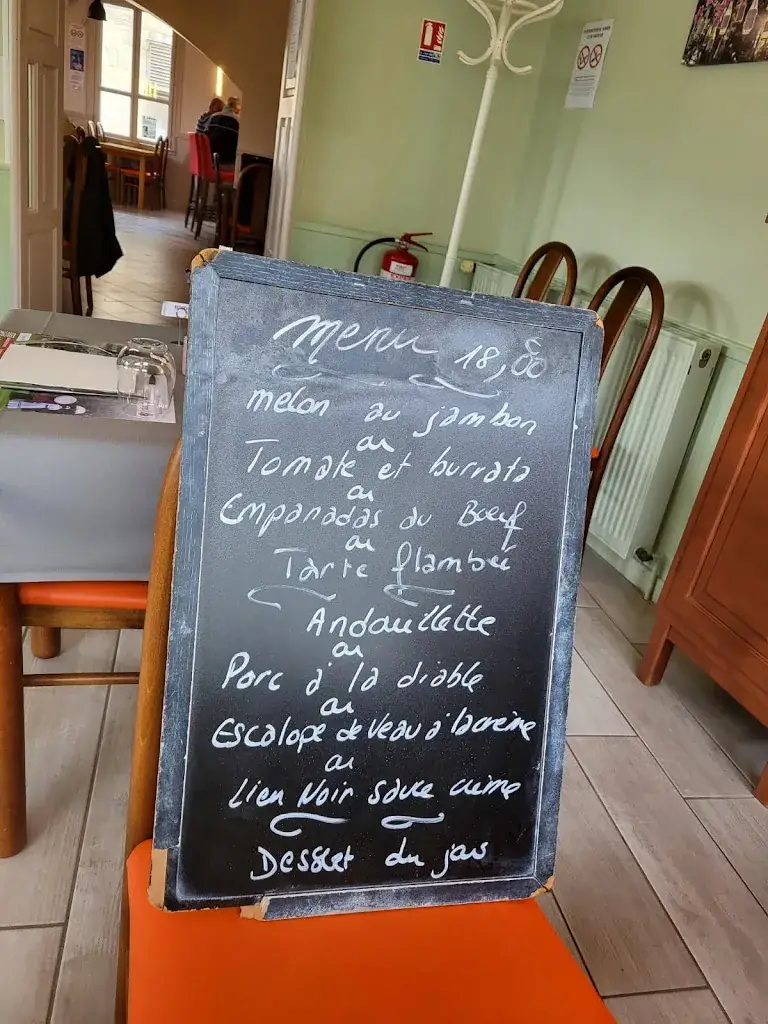 Menu 18,80
melon au jambon
ou
Tomate et burrata
ou
Empanadas au Boeuf
ou
Tarte flambée
Andouillette
ou
Porc à la diable
ou
Escalope de Veau à la crème
ou
Lieu Noir sauce crème
Dessert du jour